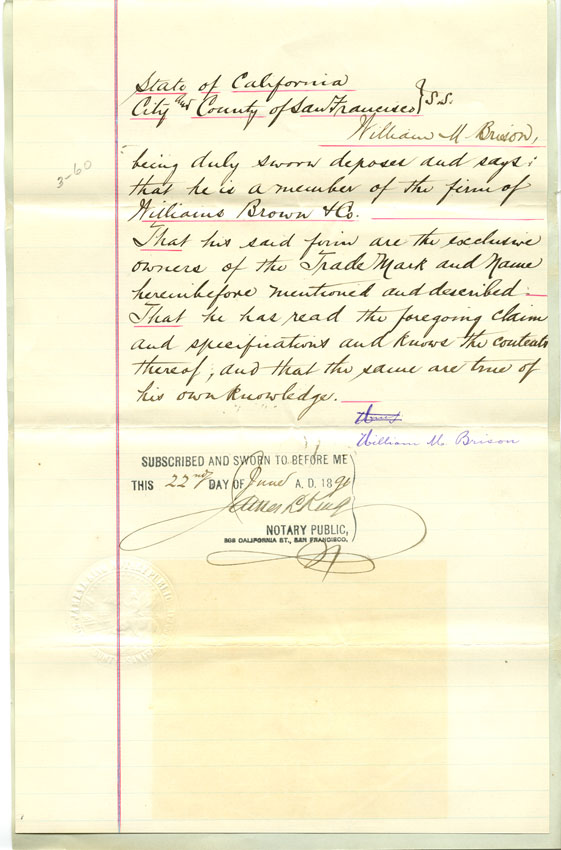 State of California
City and County of San Francisco } S.S.
William M Brison,
being duly sworn deposes and says:
that he is a member of the firm of
Williams Brown & Co.
That his said firm are the exclusive
owners of the Trade Mark and Name
hereinbefore mentioned and described
That he has read the foregoing claim
and specifications and knows the contents
thereof; and that the same are true of
his own knowledge.
William M Brison
3-60
SUBSCRIBED AND SWORN TO BEFORE ME
THIS 22nd DAY OF June A. D. 1890
James L King
NOTARY PUBLIC,
CALIFORNIA ST., SAN FRANCISCO.